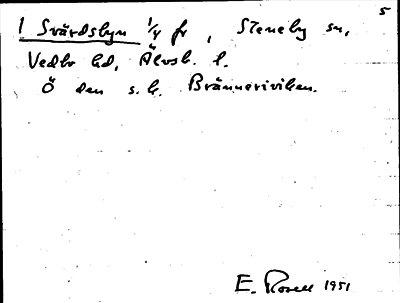 5
1 Svärdsbyn 1/4 fr, Steneby sn,
Vedbo hd, Älvsb. l.
Ö den s.k. Bränneriviken.
E. Rosell 1951